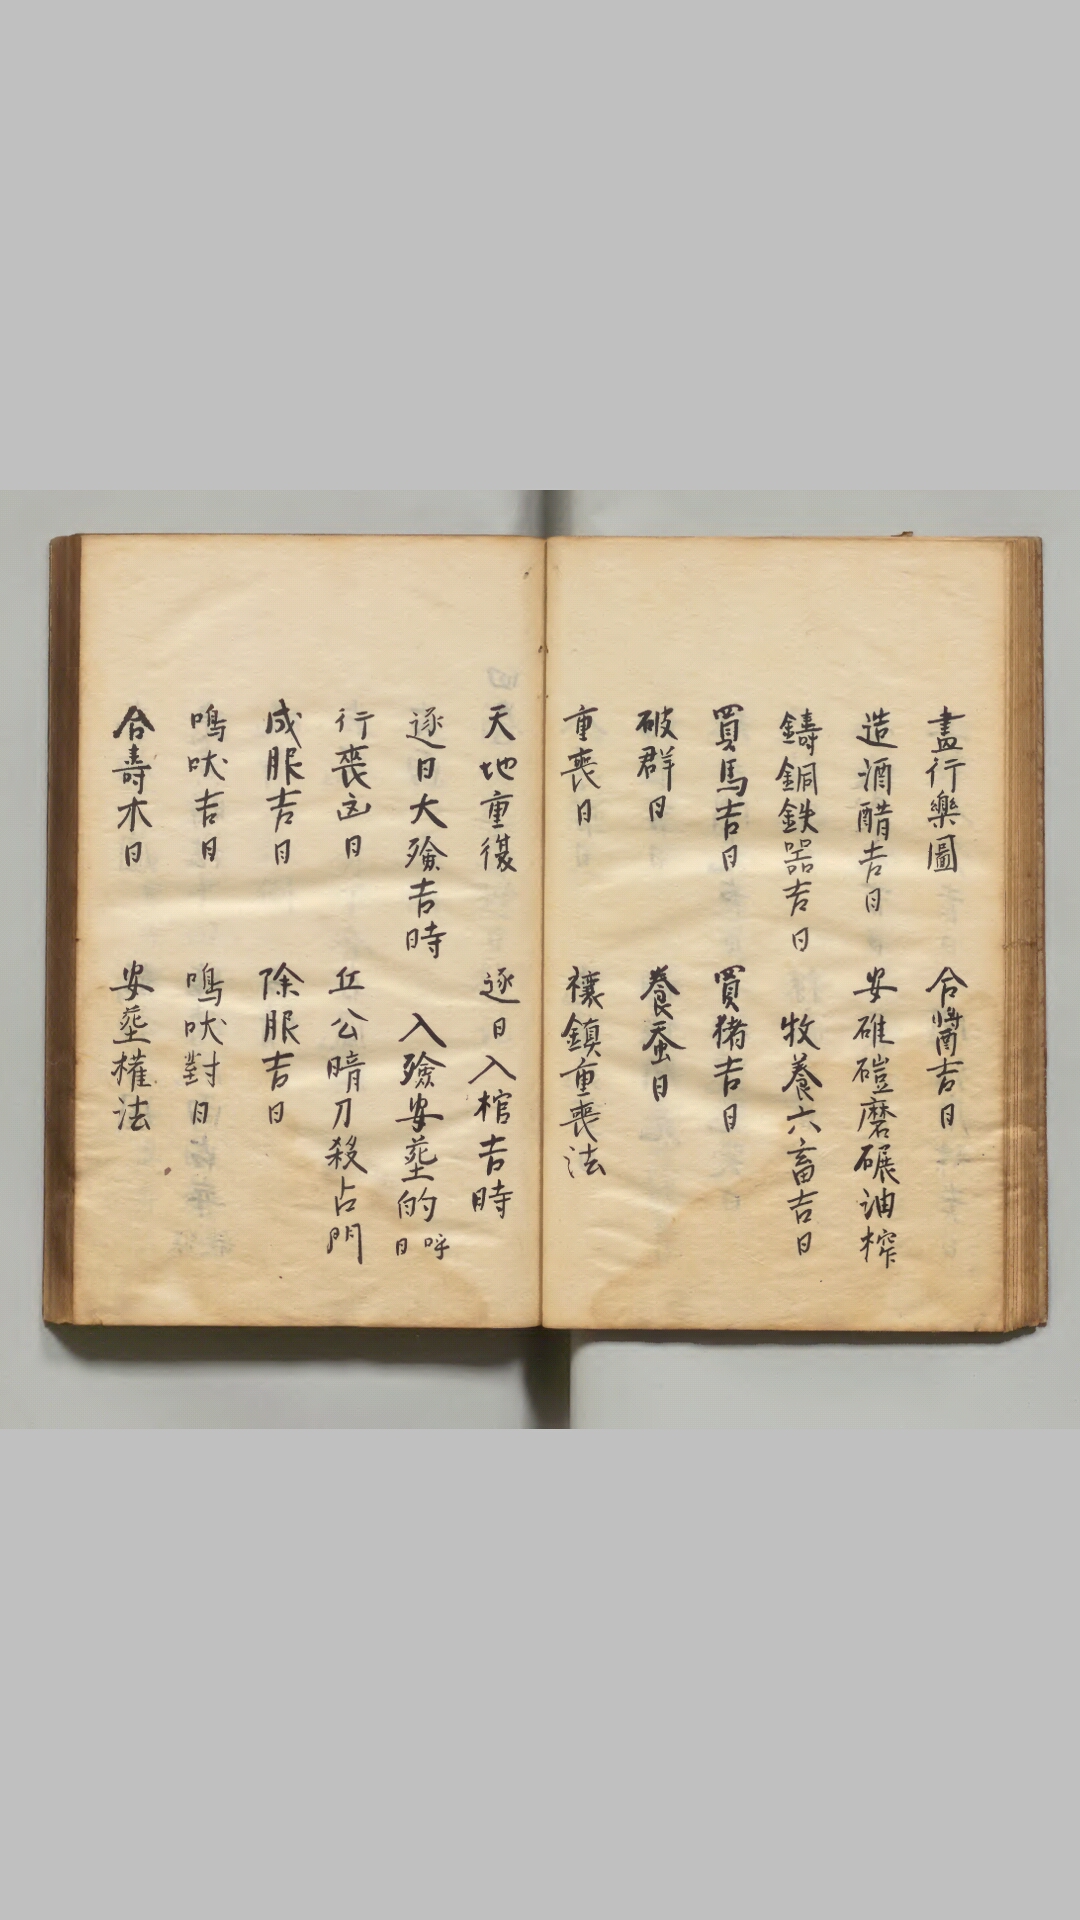 畫行樂圖　合醬吉日
造酒醋吉日　安碓磑磨碾油榨
鑄銅鉄器吉日　牧養六畜吉日
買馬吉日　買猪吉日
破群日　養蚕日
重喪日　禳鎮重喪法
天地重復　逐日入棺吉時
逐日大殮吉時　入殮安塟的呼日
行喪凶日　丘公暗刀殺占門
成服吉日　除服吉日
鳴吠吉日　鳴吠對日
合壽木日　安塟權法